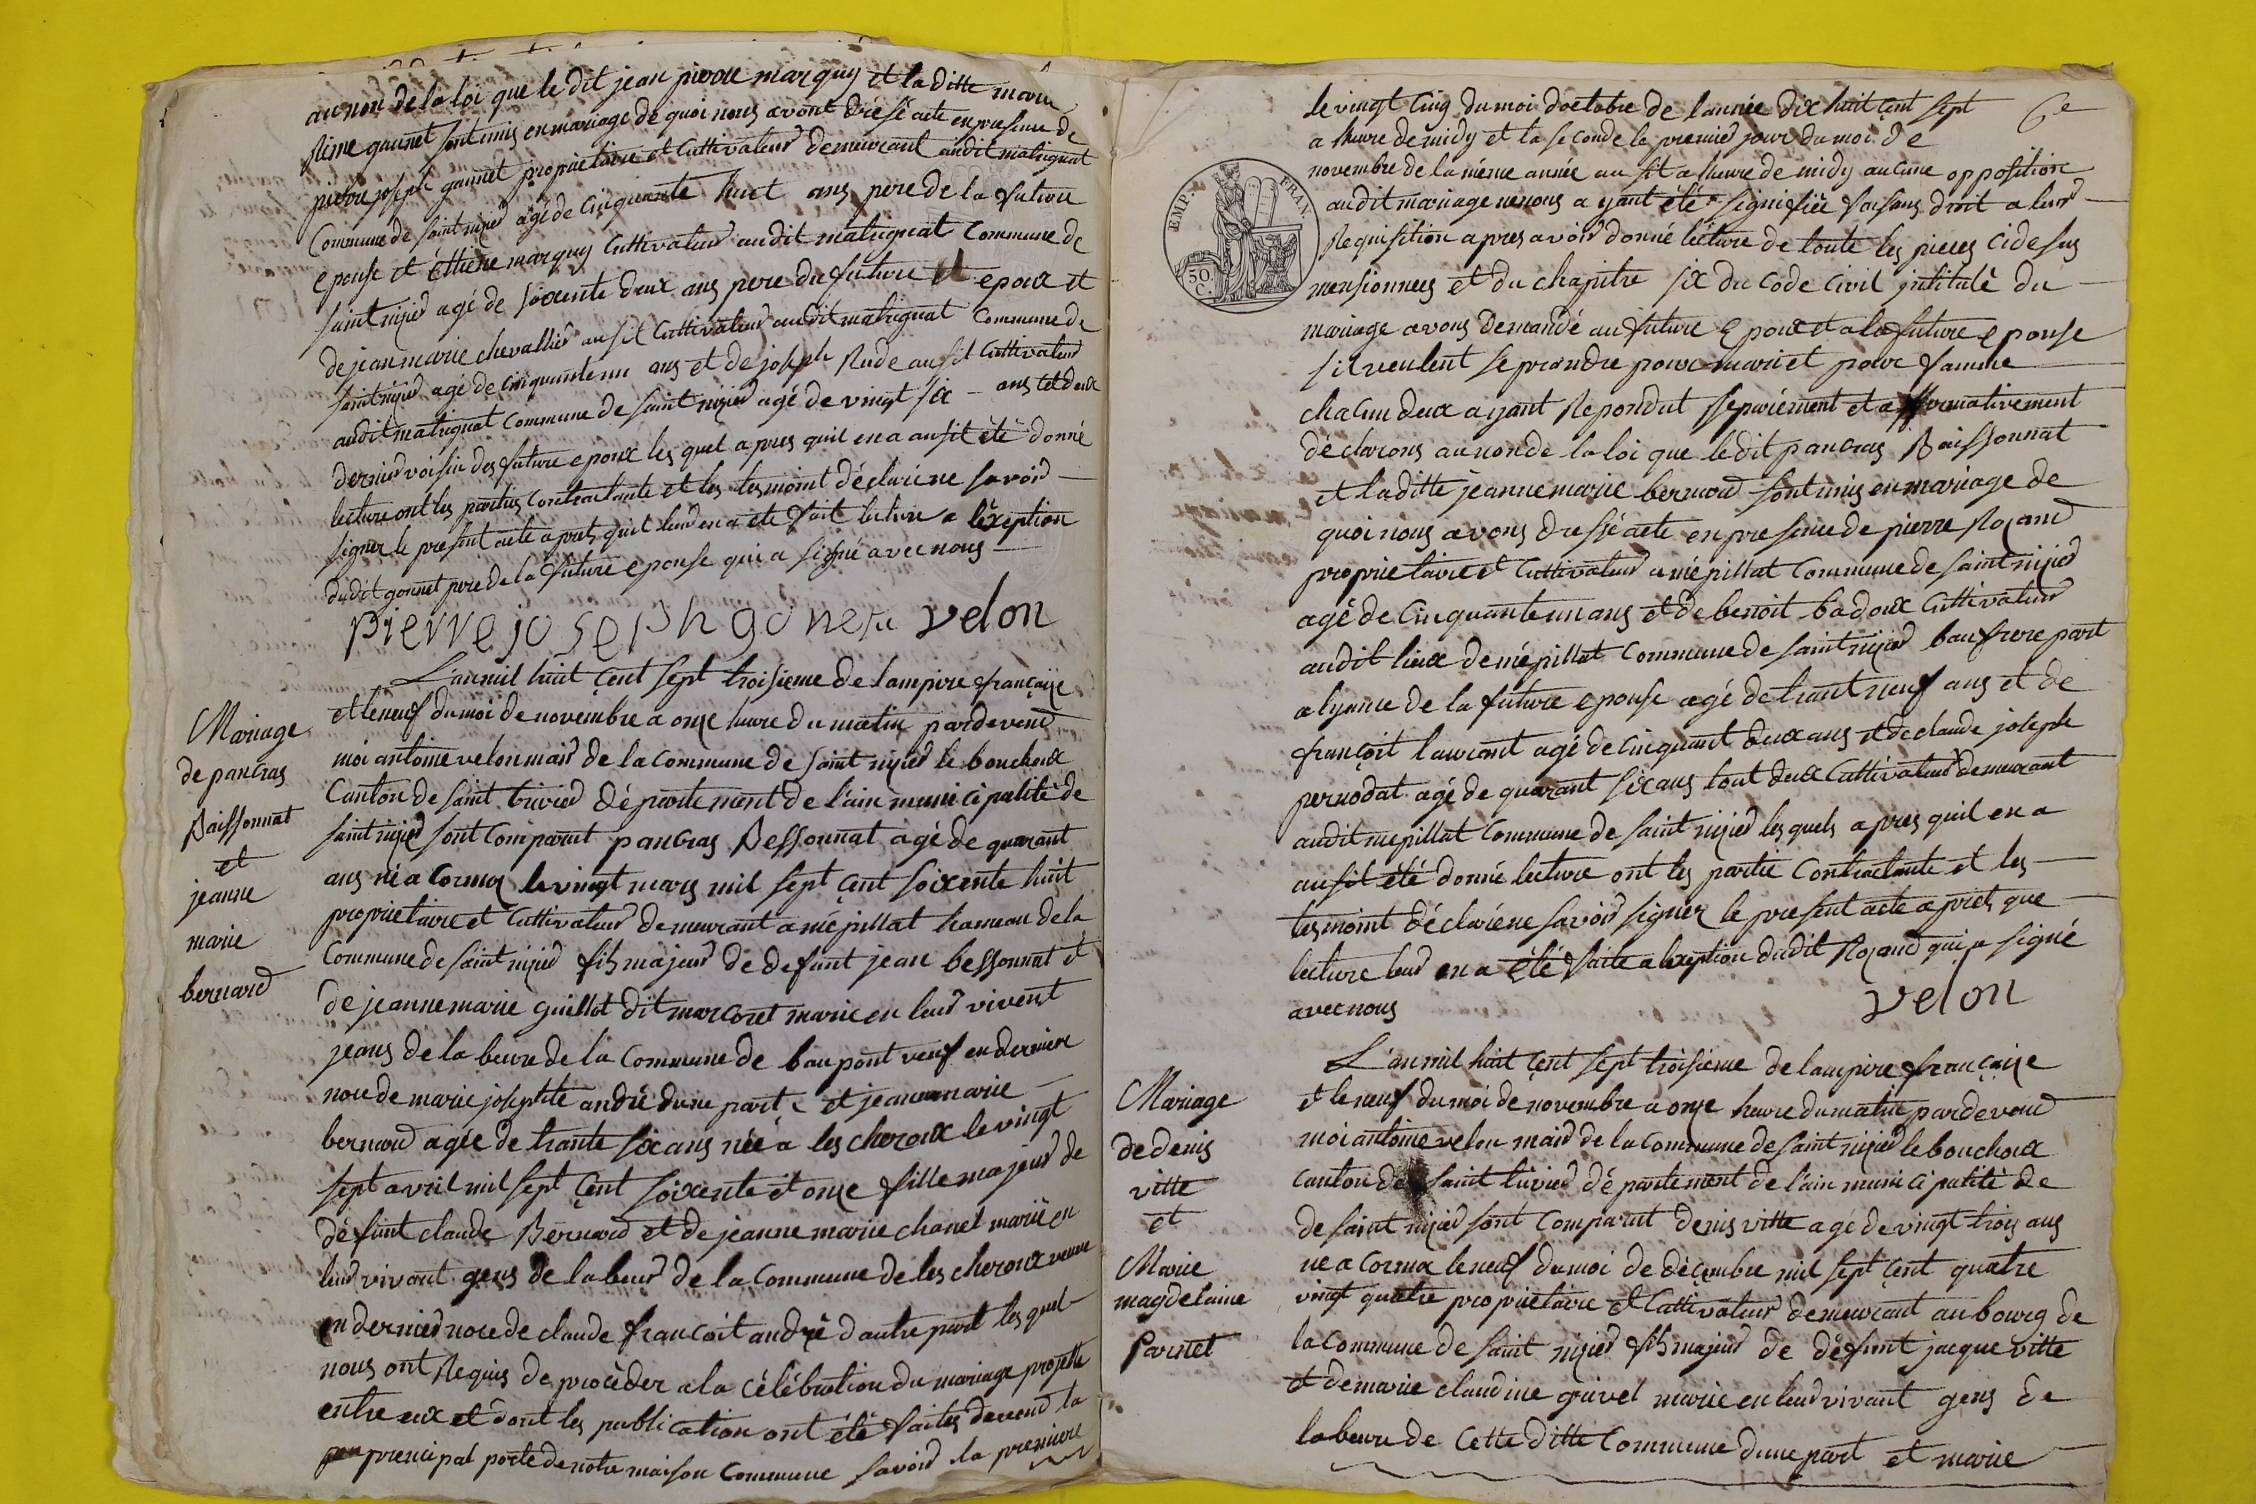 au non de la loi que le dit jean pierre marguy et la ditte marie
gaunet sont unis en mariage de quoi nous avont dresé acte en presence de
pierre joseph gaunet proprietaire et Cultivateur demeurant audit matrignat
Commune de saint nizier agé de Cinquante huit ans pere de la future
epouse et éttiene marguy Cultivateur audit matrignat Commune de
saint nizier agé de soixente deux ans pere du future epoux et
de jean marie chevallier ausit Cultivateur audit matrignat Commune de
saint nizier agé de Cinquantenn ans et de joseph Rude ausit Cultivateur
audit matrignat Commune de saint nizier agé de vingt six ans tet deux
dernier voisin des future epoux les quel apres quil en a ausit été donné
lecture ont les parties Contractante et les tesmoint déclaré ne savoir
signer le present acte apres quil leur en a été fait lecture a lexeption
dudit gonnet pere de la future epouse qui a signé avec nous
pierre joseph gonet velon
L'an mil huit çent sept troisieme de lampire françaize
et le neuf du moi de novembre a onze heure du matin pardevend
moi antoine velon mair de la Commune de saint nizier le bouchoux
Canton de saint trivier département de l'ain municipalité de
saint nizier sont Comparut pancras Bessonnat agé de quarant
ans né a Cormoz le vingt mars mil sept çent soixente huit
proprietaire et Cultivateur demeurant a mépillat hameau de la
Commune de saint nizier fils majeur de defunt jean bessonnat et
de jeanne marie guillot dit marcoret marie en leur vivent
jeans de la beure de la Commune de baupont veuf en derniere
noce de marie josephte andré dune part et jeanne marie
bernard agée de trante six ans née a les cheroux le vingt
sept avril mil sept çent soixente et onze fille majeur de
défunt claude Bernard et de jeanne marie chanel marié en
leur vivant gens de labeur de la Commune de les cheroux veuve
en dernier noce de claude françoit andré dautre part les quel
nous ont Requis de proceder a la célébration du mariage projetté
entre eux et dont les publication ont été faites devend la
prencipal porte de notre maison Commune savoir la premiere
Mariage
de pancras
Baissonnat
et
jeanne
marie
bernard
le vingt Cinq du moi doctobre de l'année dix huit çent sept
a heure de midy et la seconde le premier jour du moi de
novembre de la méme année au sit a heure de midy aucune opposition
audit mariage ne nous ayant été signifiée faisans droit a leur
Requisition apres avoir donné lécture de toute les pieces Cidesus
mensionnees et du chapitre six du Code Civil jntitulé du
mariage avons demandé au future epoux et a la future epouse
sil veulent se prendre pour mari et pour famme
chacun deux ayant Repondut separément et affirmativement
déclarons au non de la loi que le dit pancras Baissonnat
et la ditte jeanne marie bernard sont unis en mariage de
quoi nous avons dressé acte en presence de pierre Rozand
proprietaire et Cultivateur a mépillat Commune de saint nizier
agé de Cinquantenn ans et de benoit badoux Cultivateur
audit lieux de mépillat Commune de saint nizier baufrere part
alyance de la future epouse agé de trant neuf ans et de
françoit laurant agé de cinquant deux ans et de claude joseph
pernodat agé de quarant six ans tout deux Cultivateur demeurant
audit mepillat Commune de saint nizier les quels apres quil en a
ausit été donné lecture ont les partie Contractante et les
tesmoint déclaré ne savoir signer le present acte apres que
lecture leur en a été faite a lexeption dudit Rozand qui a signé
avec nous
velon
EMP. FRAN.
50 C.
L'an mil huit çent sept troisieme de lampire françaize
et le neuf du moi de novembre a onze heure du matin pardevend
moi antoine velon mair de la Commune de saint nizier le bouchoux
Canton de saint trivier département de l'ain municipalité de
de saint nizier sont Comparut denis vitte agé de vingt trois ans
né a Cormoz le neuf du moi de déçembre mil sept çent quatre
vingt quatre proprietaire et Cultivateur demeurant au bourg de
la Commune de saint nizier fils majeur de défunt jacque vitte
et de marie claudine grivel marié en leur vivant gens de
labeure de Cette ditte Commune dune part et marie
Mariage
de denis
vitte
et
Marie
magdelaine